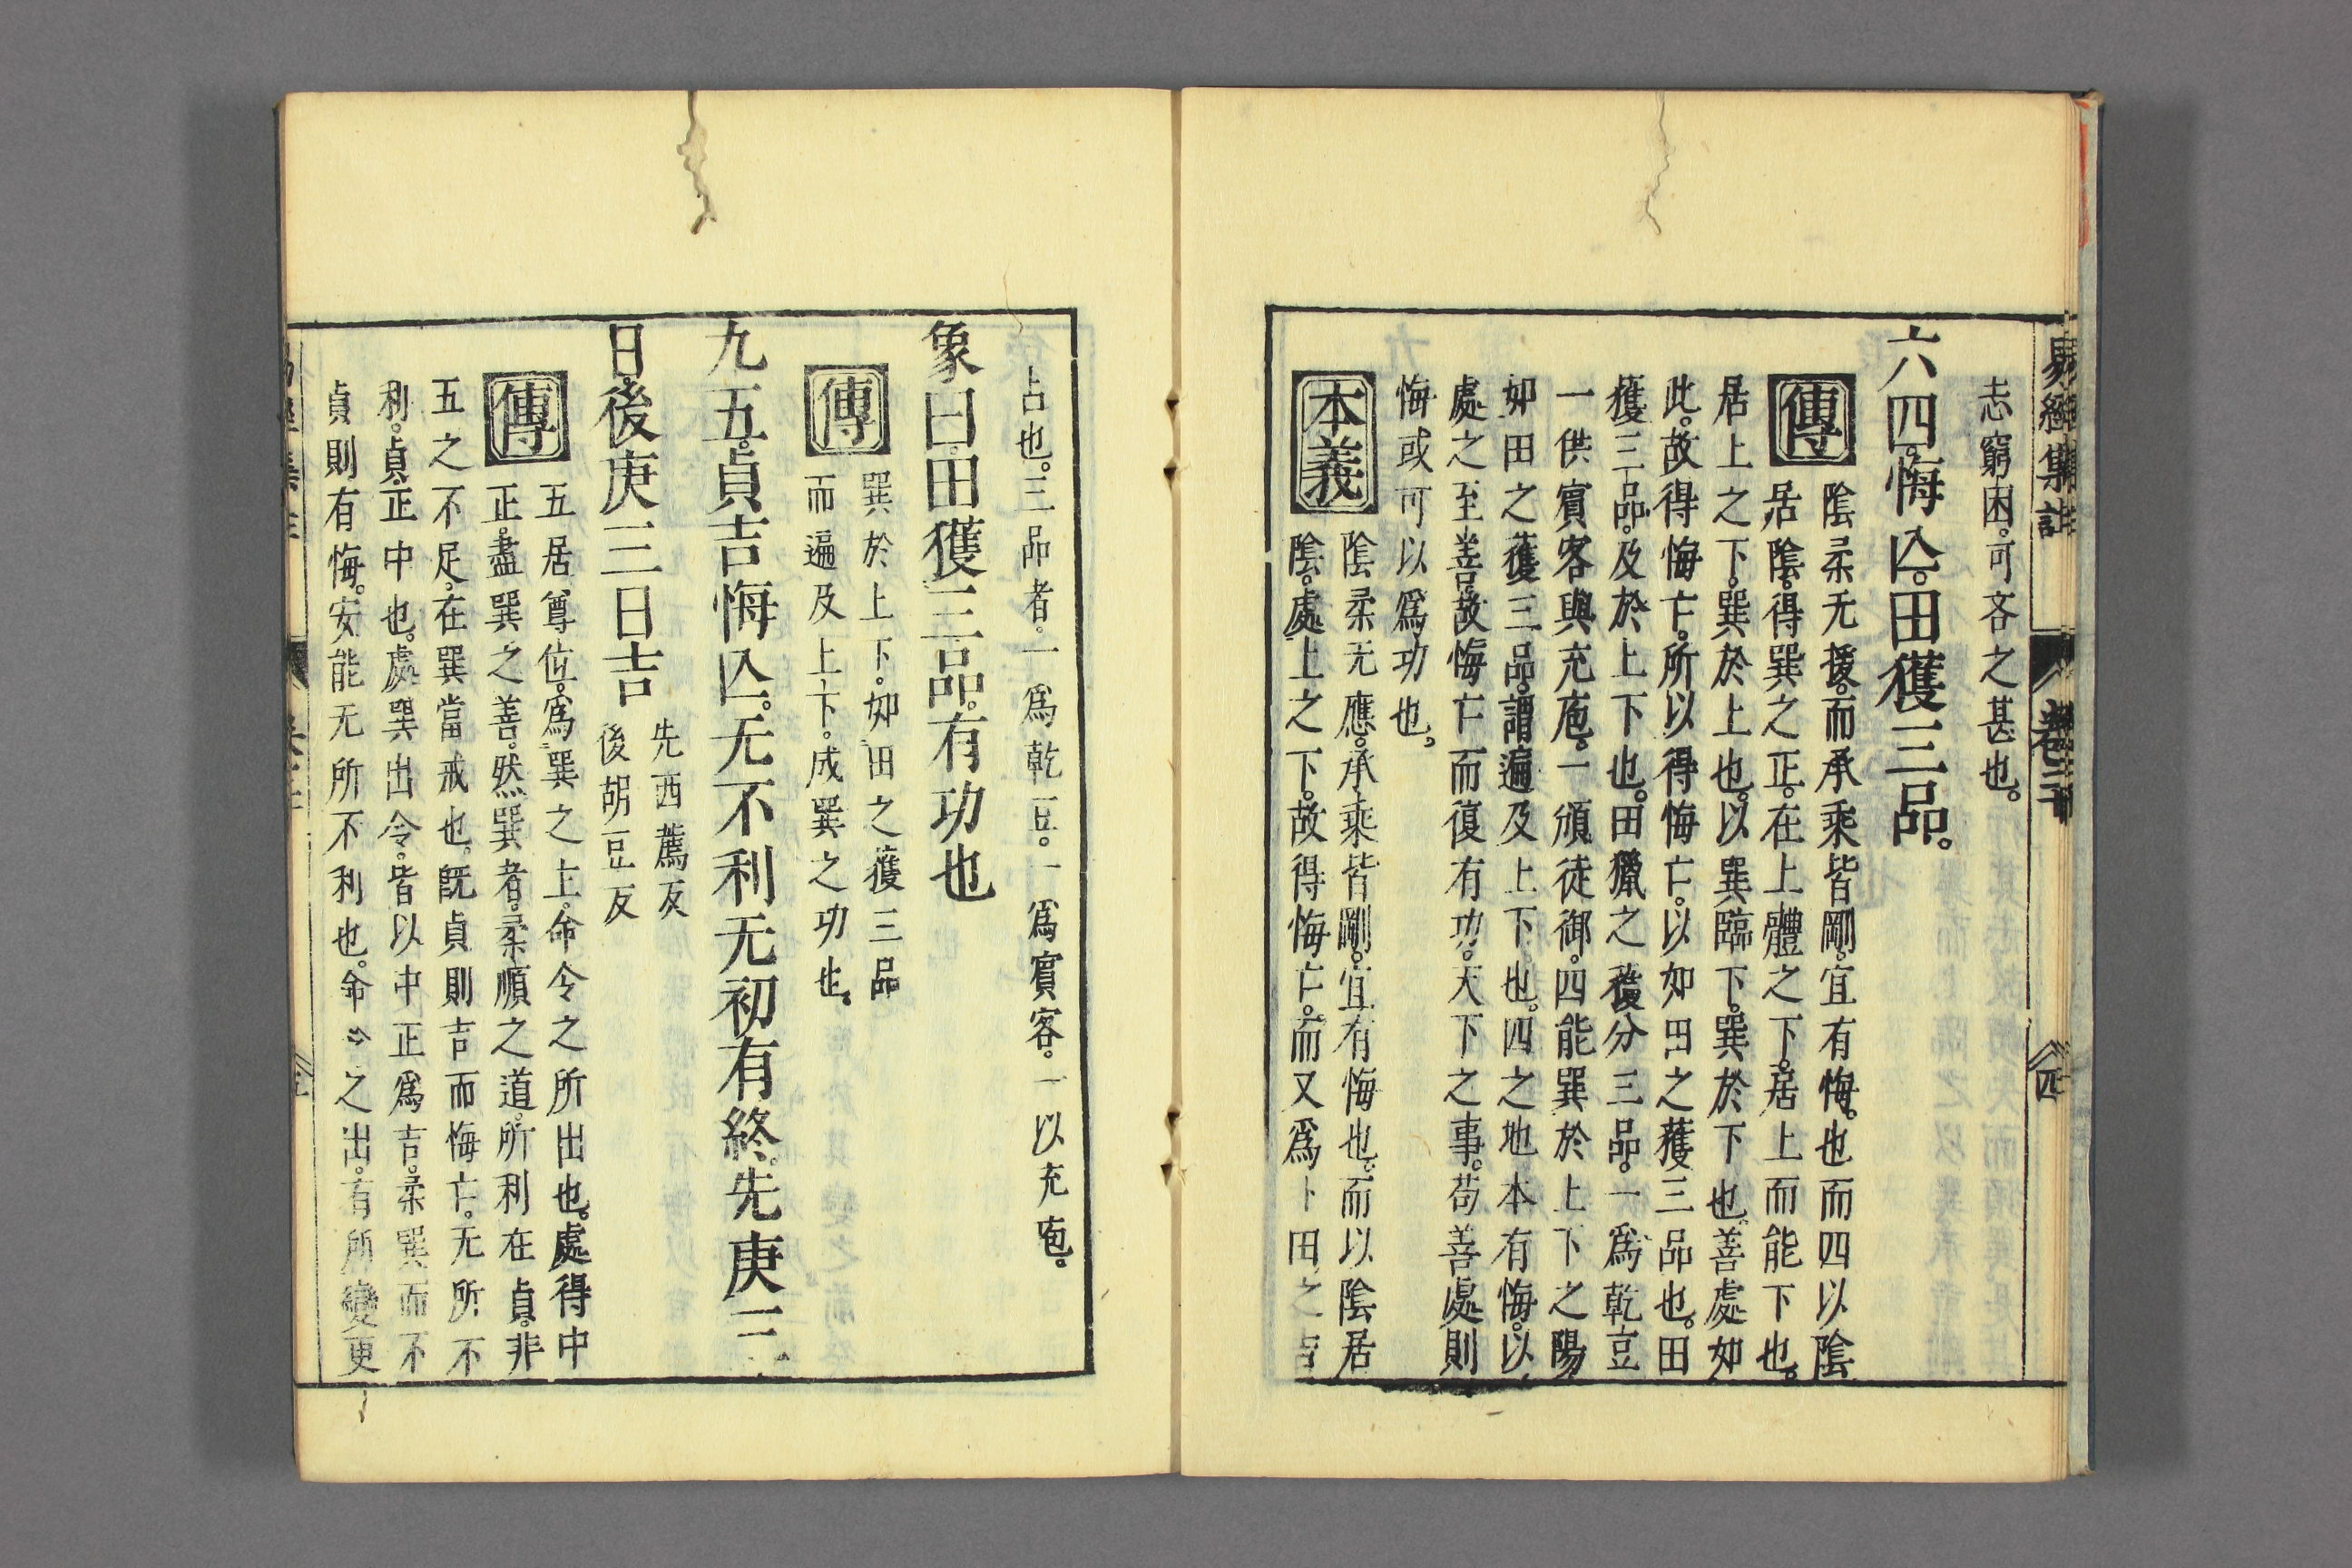 易經集註
卷二十
四
志窮困。可吝之甚也。
六四。悔亾。田獲三品。
傳
陰柔无援。而承乘皆剛。宜有悔。也而四以陰
居陰。得巽之正。在上體之下。居上而能下也。
居上之下。巽於上也。以巽臨下。巽於下也。善處如
此。故得悔亡。所以得悔亡。以如田之獲三品也。田
獲三品。及於上下也。田獵之獲分三品。一爲乾豆
一供賓客與充庖。一頒徒御。四能巽於上下之陽
如田之獲三品。謂遍及上下。也。四之地本有悔。以
處之至善。故悔亡而復有功。天下之事。苟善處則
悔或可以爲功也。
本義
陰柔无應。承乘皆剛。宜有悔也。而以陰居
陰。處上之下。故得悔亡。而又爲卜田之吉
占也。三品者。一爲乾豆。一爲賓客。一以充庖。
象曰。田獲三品。有功也
傳
巽於上下。如田之獲三品
而遍及上下。成巽之功也。
九五。貞吉悔亾。无不利无初有終。先庚三
日。後庚三日吉
先西薦反
後胡豆反
傳
五居尊位。爲巽之上。命令之所出也。處得中
正。盡巽之善。然巽者。柔順之道。所利在貞。非
五之不足。在巽當戒也。既貞則吉而悔亡。无所不
利。貞。正中也。處巽出令。皆以中正爲吉。柔巽而不
貞則有悔。安能无所不利也。命令之出。有所變更